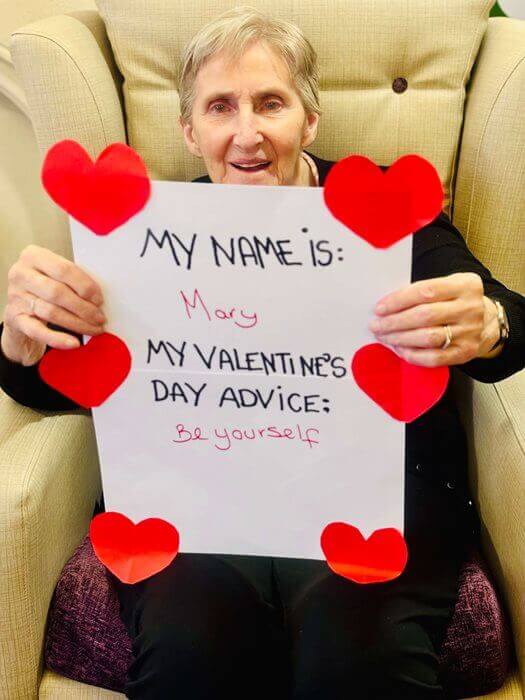 MY NAME iS:
Mary
MY VALENTINE'S
DAY ADVICE:
Be yourself